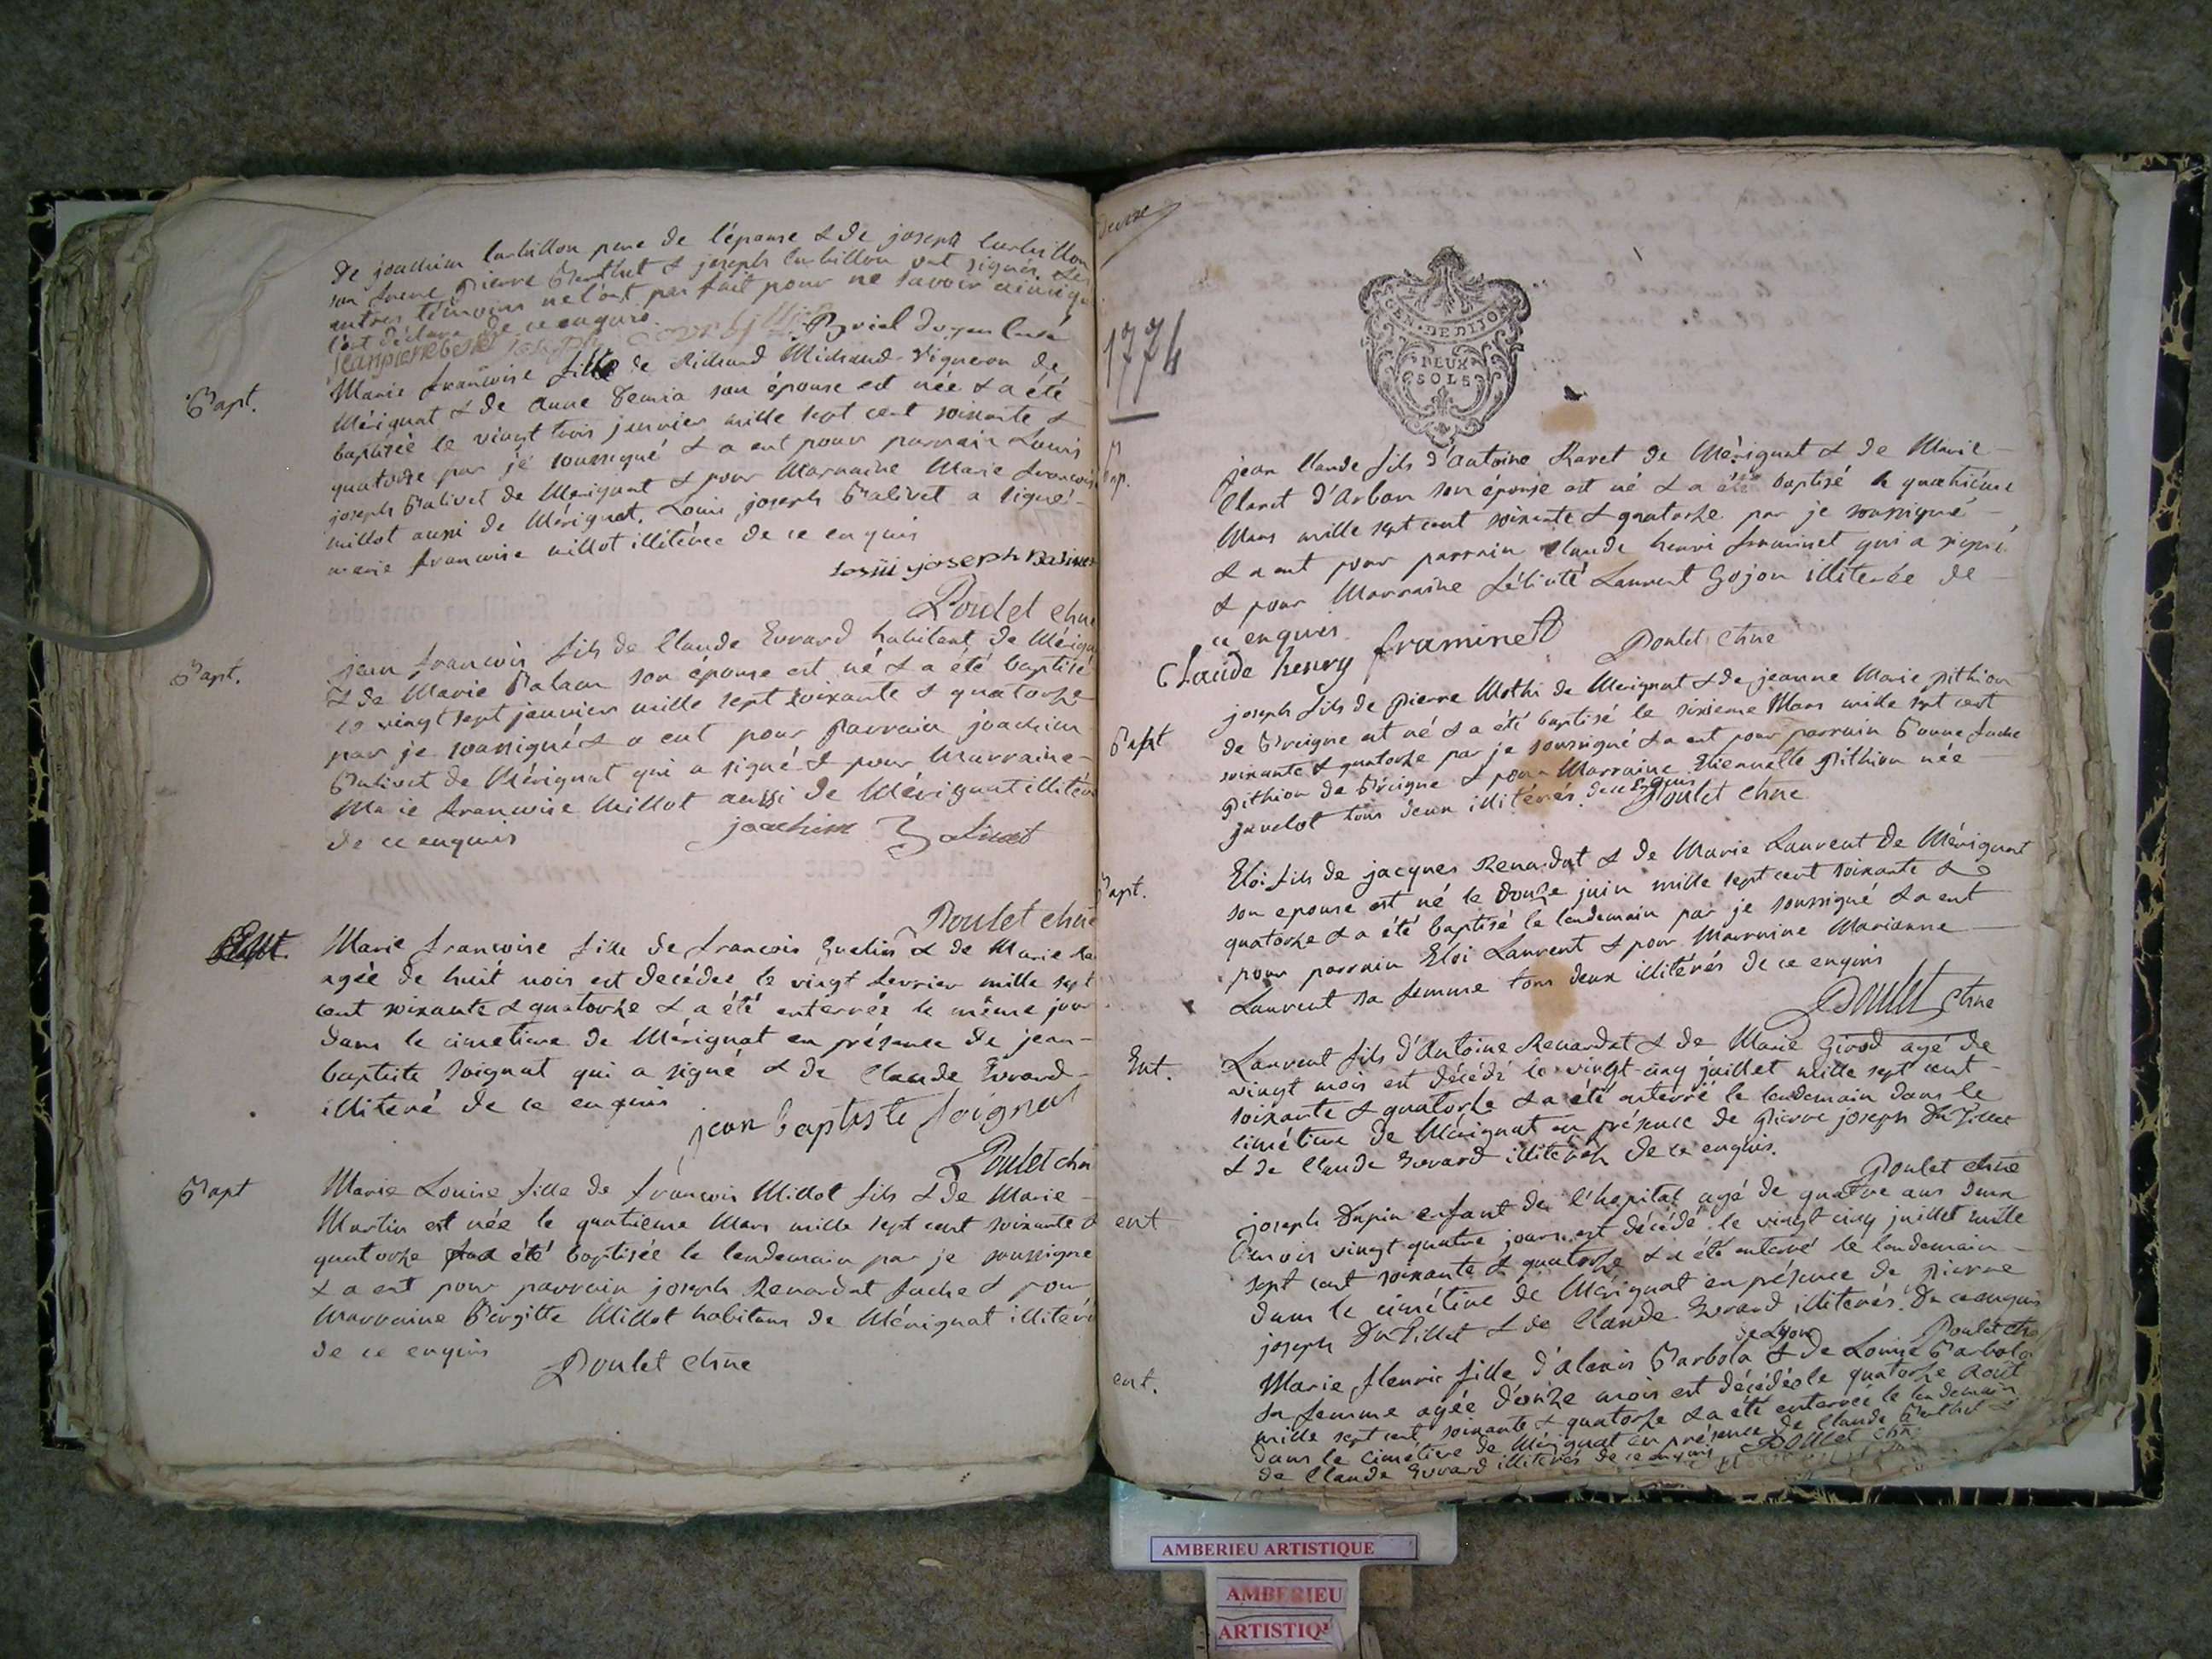 de joachim Curbillon pere de l'épouse & de joseph Curbillon
son frere pierre Berthet & joseph Curbillon ont signés. les
autres témoins ne l'ont pas fait pour ne savoir ainsi qu
l'ont déclaré de ce enquis.
jean pierre Curé
Bapt.
Marie francoise fille de Richard Michaud Vigneron de
Mérignat & de anne Temia son épouse est née & a été
baptisée le vingt trois janvier mille sept cent soixante &
quatorze par je soussigné & a eut pour parrain Louis
joseph Balivet de Merignat & pour Marraine Marie francoise
millot aussi de Mérignat. Louis joseph Balivet a signé
marie francoise millot illitérée de ce enquis
Loüi joseph Balivet
Poulet chne
Bapt.
jean francois fils de Claude Evrard habitant de Mérigna
& de Marie son épouse est né & a été baptisé
le vingt sept janvier mille sept soixante & quatorze
par je soussigné & a eut pour parrain joachim
Balivet de Mérignat qui a signé & pour Marraine
Marie francoise Millot aussi de Mérignat illitéré
de ce enquis
joachim Balivet
Poulet chne
Marie francoise fille de francois & de Marie
agée de huit mois est decédée le vingt fevrier mille sept
cent soixante & quatorze & a été enterrée le même jour
dans le cimetiere de Mérignat en présence de jean
baptiste Soignat qui a signé & de Claude Evrard
illiteré de ce enquis
jean baptiste Soignat
Poulet chn
Bapt
Marie Louise fille de francois Millot fils & de Marie
Martin est née le quatrieme Mars mille sept cent soixante &
quatorze & a été baptisée le lendemain par je soussigné
& a eut pour parrain joseph Renardat fuche & pour
Marraine Birgitte Millot habitans de Mérignat illitéré
de ce enquis
Poulet chne
1774
GEN. DE DIJON
DEUX
SOLS
Bap.
jean Claude fils d'antoine Ravet de Mérignat & de Marie
Claret d'Arban son épouse est né & a été baptisé le quatrième
Mars mille sept cent soixante & quatorze par je soussigné
& a eut pour parrain Claude henri framinet qui a signé
& pour Marraine félicité Laurent Gojon illiterée de
ce enquis
Claude henry framinet
Poulet chne
Bapt
joseph fils de pierre Mothi de Merignat & de jeanne Marie pithion
de Breigne est né & a été baptisé le sixieme Mars mille sept cent
soixante & quatorze par je soussigné & a eut pour parrain
pithion de Breigne & pour Marraine Etiennette pithion née
javelot tous deux illitérés. de ce enquis
Poulet chne
Bapt.
Eloi fils de jacques Renardat & de Marie Laurent de Mérignat
son epouse est né le douze juin mille sept cent soixante &
quatorze & a été baptisé le lendemain par je soussigné & a eut
pour parrain Eloi Laurent & pour Marraine Marianne
Laurent sa femme tous deux illitérés de ce enquis
Poulet chne
Ent.
Laurent fils d'Antoine Renardat & de Marie Girod agé de
vingt mois est décédé le vingt-cinq juillet mille sept cent
soixante & quatorze & a été enterré le lendemain dans le
cimétiere de Mérignat en présence de pierre joseph DuTillet
& de Claude Evrard illitérés de ce enquis.
Poulet chne
ent
joseph Dupin enfant de l'hopital agé de quatre ans deux
mois vingt quatre jours est décédé le vingt cinq juillet mille
sept cent soixante & quatorze & a été enterré le lendemain
dans le cimétiere de Mérignat en présence de pierre
joseph DuTillet & de Claude Evrard illiterés. De ce enquis
Poulet chn
ent.
de Lyon
Marie fleurie fille d'alexis Barbola & de Louise Barbola
sa femme agée d'onze mois est décédée le quatorze Août
mille sept cent soixante & quatorze & a été enterrée le lendemain
dans le cimétiere de Mérignat en présence de Claude Berthet &
de Claude Evrard illitérés de ce enquis Poulet chn
AMBERIEU ARTISTIQUE
AMBERIEU
ARTISTIQ